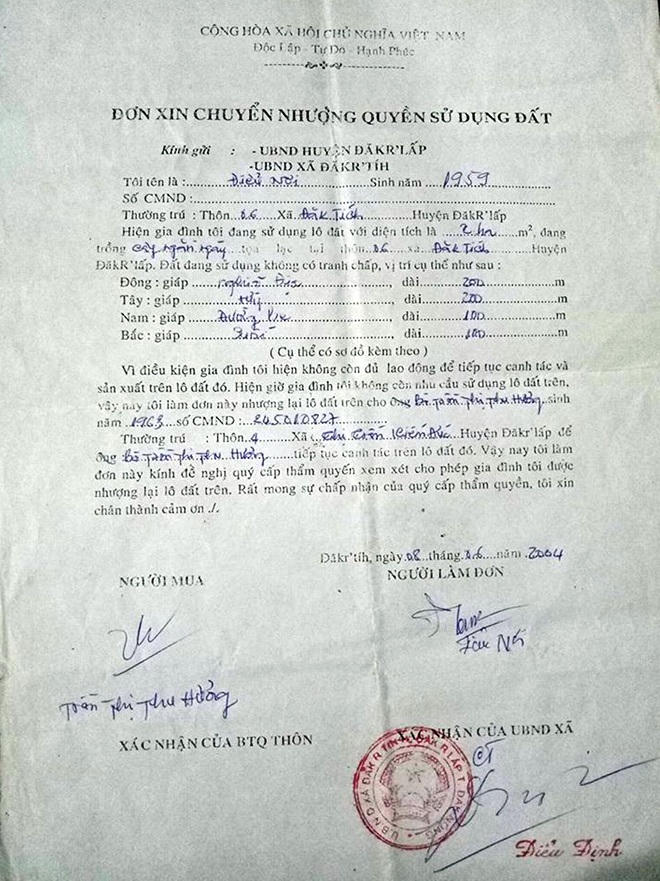 CỘNG HÒA XÃ HỘI CHỦ NGHĨA VIỆT NAM
Độc Lập - Tự Do - Hạnh Phúc
ĐƠN XIN CHUYỂN NHƯỢNG QUYỀN SỬ DỤNG ĐẤT
Kính gửi : - UBND HUYỆN ĐĂKR'LẤP
-UBND XÃ ĐĂKR'TÍH
Tôi tên là : Điểu Nơi Sinh năm 1959
Số CMND :
Thường trú : Thôn 06 Xã Đăk Tích Huyện ĐăkR'lấp
Hiện gia đình tôi đang sử dụng lô đất với diện tích là 2 ha m², đang
trồng cây ngắn ngày tọa lạc tại thôn 06 xã Đăk Tích Huyện
ĐăkR'lấp. Đất đang sử dụng không có tranh chấp, vị trí cụ thể như sau :
Đông : giáp dài 200 m
Tây : giáp dài 200 m
Nam : giáp Đường dài 100 m
Bắc : giáp Suối dài 100 m
( Cụ thể có sơ đồ kèm theo )
Vì điều kiện gia đình tôi hiện không còn đủ lao động để tiếp tục canh tác và
sản xuất trên lô đất đó. Hiện giờ gia đình tôi không còn nhu cầu sử dụng lô đất trên,
vậy nay tôi làm đơn này nhượng lại lô đất trên cho ông Bà Toàn Thị Thu Hường sinh
năm 1963 số CMND : 245010827
Thường trú : Thôn 4 Xã Thị Trấn Kiến Đức Huyện Đăkr'lấp để
ông Bà Toàn Thị Thu Hường tiếp tục canh tác trên lô đất đó. Vậy nay tôi làm
đơn này kính đề nghị quý cấp thẩm quyền xem xét cho phép gia đình tôi được
nhượng lại lô đất trên. Rất mong sự chấp nhận của quý cấp thẩm quyền, tôi xin
chân thành cảm ơn ./.
Đăkr'tíh, ngày 08 tháng 06 năm 2004
NGƯỜI MUA NGƯỜI LÀM ĐƠN
Toàn Thị Thu Hường
XÁC NHẬN CỦA BTQ THÔN XÁC NHẬN CỦA UBND XÃ
CT
U.B.N.D XÃ ĐĂK R'TIH H. ĐĂK R'LẤP T. ĐĂK NÔNG
Điểu Định